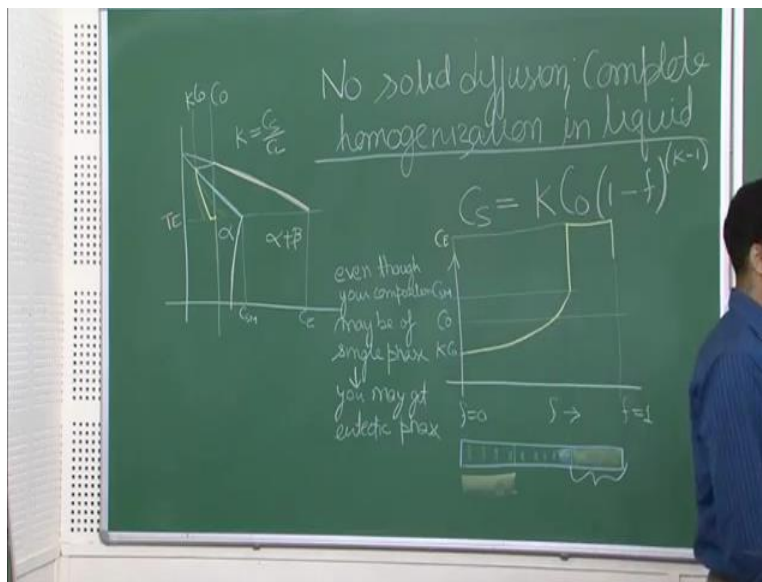 No solid diffusion; Complete
homogenization in liquid
KC0 C0
K = Cs/CL
TE
α
α+β
CSM
CE
Cs = KC0(1-f)^(K-1)
CE
CSM
C0
KC0
f=0
f →
f=1
even though
your composition
may be of
single phase
↓
you may get
eutectic phase